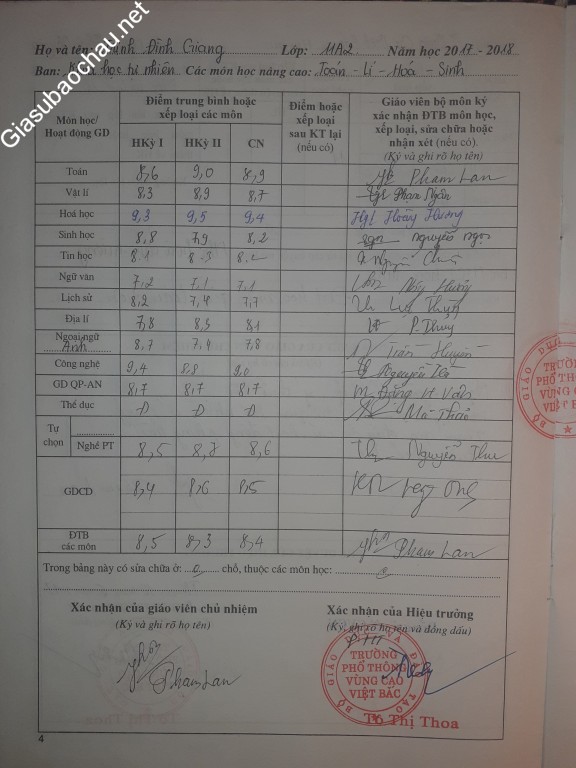 Giasubaochau.net
Họ và tên: Đình Giang Lớp: 11A2 Năm học 2017 - 2018
Ban: Khoa học tự nhiên Các môn học nâng cao: Toán - Lí - Hoá - Sinh
Môn học/ Hoạt động GD
Điểm trung bình hoặc xếp loại các môn
HKỳ I HKỳ II CN
Điểm hoặc xếp loại sau KT lại (nếu có)
Giáo viên bộ môn ký xác nhận ĐTB môn học, xếp loại, sửa chữa hoặc nhận xét (nếu có).
(Ký và ghi rõ họ tên)
Toán 8,6 9,0 8,9 Pham Lan
Vật lí 8,3 8,9 8,7 Phạm Ngân
Hoá học 9,3 9,5 9,4 Hoàng Hương
Sinh học 8,8 7,9 8,2 Nguyễn
Tin học 8.1 8.3 8.2 Nguyễn
Ngữ văn 7,2 7,1 7,1
Lịch sử 8,2 7,4 7,7
Địa lí 7,8 8,3 8,1 P. Thuý
Ngoại ngữ 8,7 7,4 7,8 Trần Huyền
Anh
Công nghệ 9,4 8,8 9,0 Nguyễn
GD QP-AN 8,7 8,7 8,7 Đặng
Thể dục Đ Đ Đ
Tự chọn
Nghề PT 8,5 8,7 8,6 Nguyễn Thu
GDCD 8,4 8,6 8,5
ĐTB các môn 8,5 8,3 8,4 Pham Lan
Trong bảng này có sửa chữa ở: 0 chỗ, thuộc các môn học: 0
Xác nhận của giáo viên chủ nhiệm
(Ký và ghi rõ họ tên)
Pham Lan
Xác nhận của Hiệu trưởng
(Ký, ghi rõ họ tên và đóng dấu)
BỘ GIÁO DỤC VÀ ĐÀO TẠO
TRƯỜNG
PHỔ THÔNG
VÙNG CAO
VIỆT BẮC
Tô Thị Thoa
4
BỘ GIÁO DỤC
TRƯỜNG
PHỔ THÔNG
VÙNG C
VIỆT B